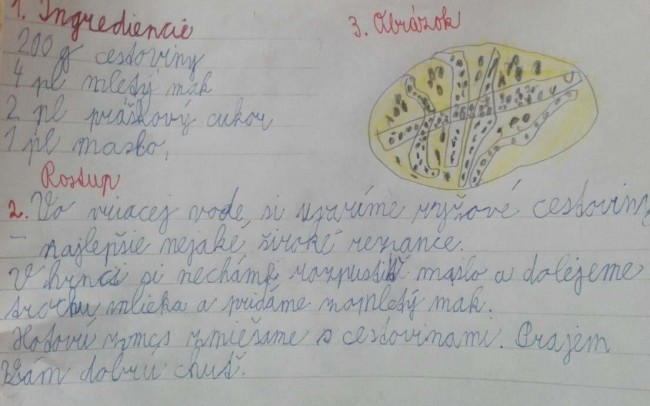 1. Ingrediencie
200 g cestoviny
4 pl mletý mak
2 pl práškový cukor
1 pl maslo,
3. Obrázok
Postup
2. Vo vriacej vode si uvaríme ryžové cestoviny
– najlepšie nejaké široké rezance.
V hrnci si necháme rozpustiť maslo a dolejeme
trochu mlieka a pridáme zomletý mak.
Hotovú zmes zmiešame s cestovinami. Prajem
Vám dobrú chuť.